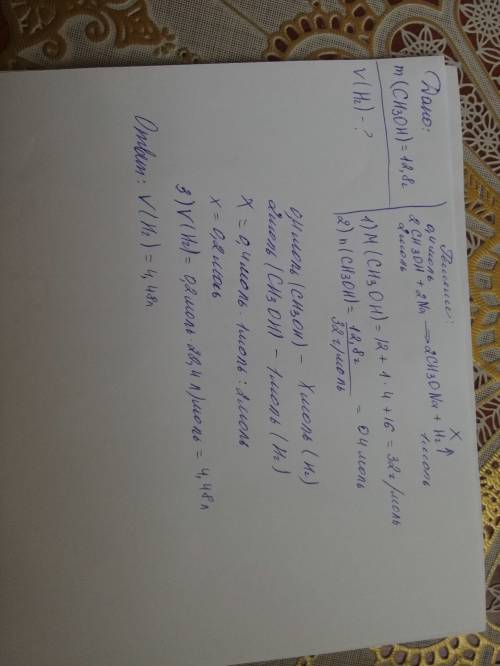 Дано:
m(CH3OH)=12,8г
V(H2)-?
Решение:
0,4моль X
2CH3OH + 2Na → 2CH3ONa + H2↑
2моль 1моль
1) M(CH3OH)=12+1·4+16=32г/моль
2) n(CH3OH)=12,8г/32г/моль = 0,4моль
0,4моль(CH3OH) – Xмоль(H2)
2моль(CH3OH) – 1моль(H2)
X = 0,4моль·1моль:2моль
x = 0,2моль
3) V(H2)=0,2моль·22,4л/моль=4,48л
Ответ: V(H2)=4,48л